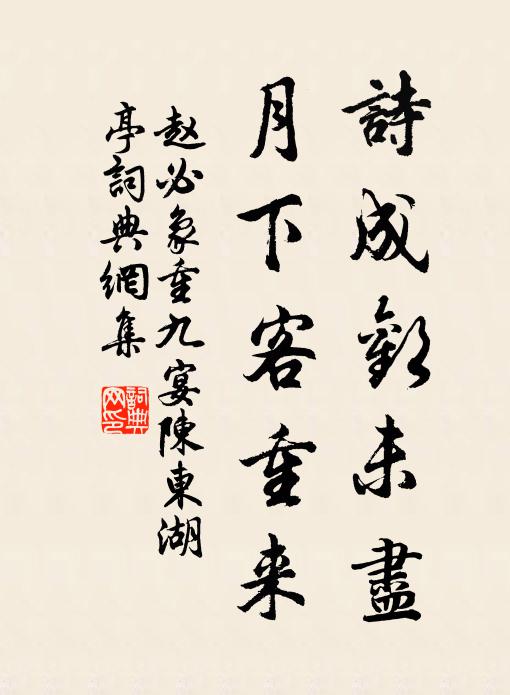 詩成歡未盡
月下客重来
赵必象重九宴陳東湖
亭詞典網集
詞典
网印